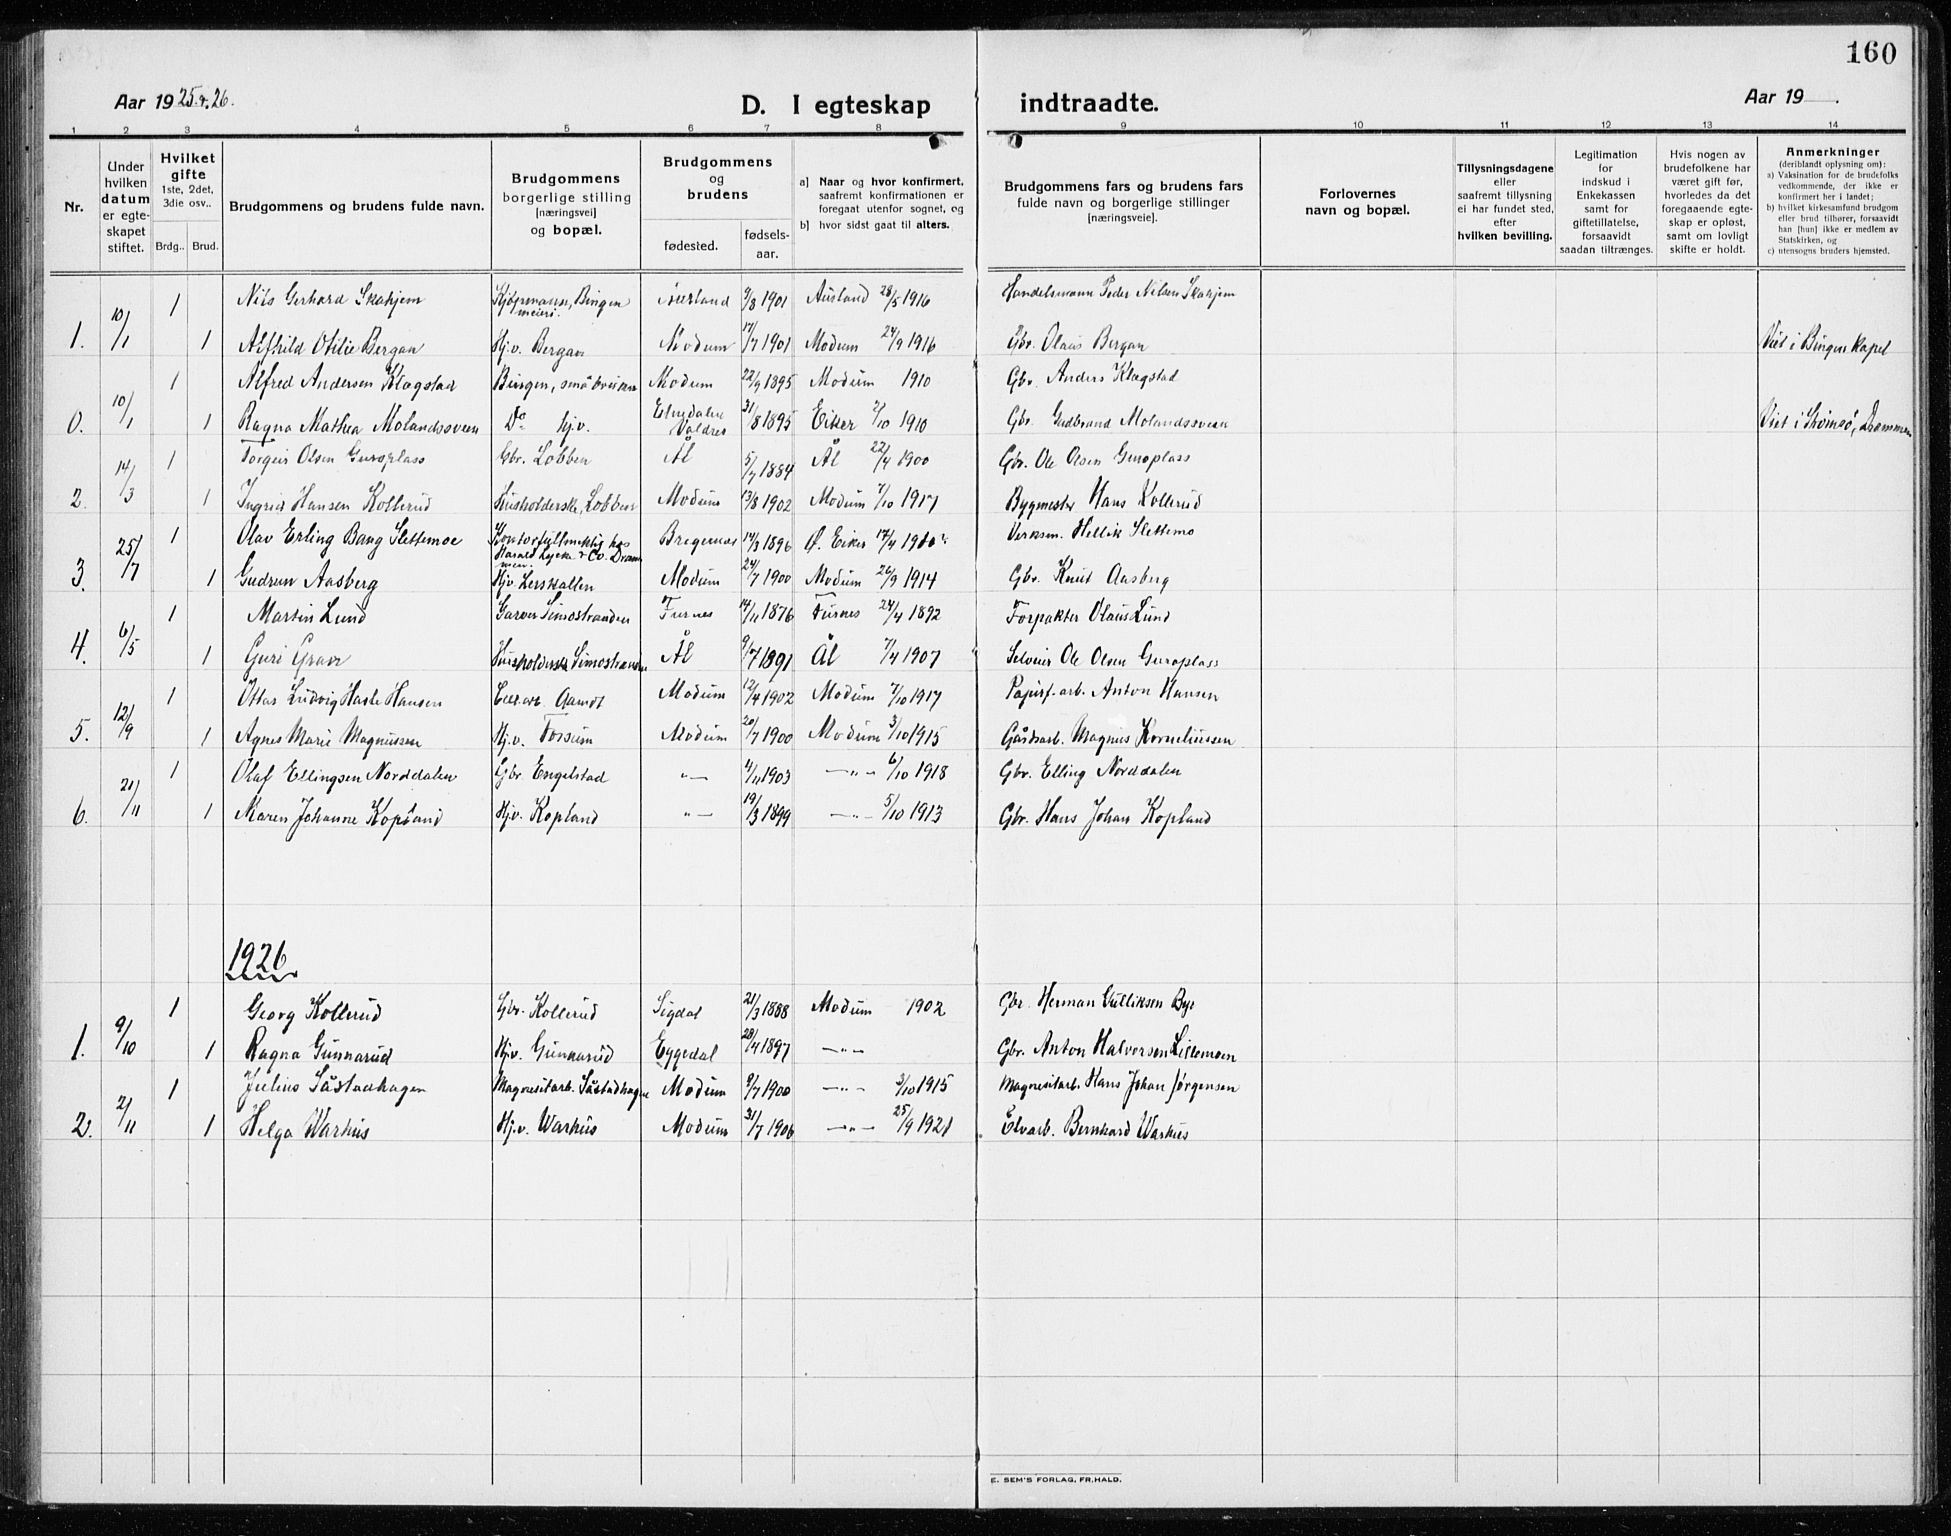 160
Aar 1925 & 26.
D. I egteskap indtraadte.
Aar 19 .
1 2 3 4 5 6 7 8 9 10 11 12 13 14
Nr.
Under hvilken datum er egte-skapet stiftet.
Hvilket gifte 1ste, 2det, 3die osv..
Brdg.. Brud.
Brudgommens og brudens fulde navn.
Brudgommens borgerlige stilling [næringsvei] og bopæl.
Brudgommens og brudens
fødested. fødsels-aar.
a] Naar og hvor konfirmert, saafremt konfirmationen er foregaat utenfor sognet, og
b] hvor sidst gaat til alters.
Brudgommens fars og brudens fars fulde navn og borgerlige stillinger [næringsveie].
Forlovernes navn og bopæl.
Tillysningsdagene eller saafremt tillysning ei har fundet sted, efter hvilken bevilling.
Legitimation for indskud i Enkekassen samt for giftetillatelse, forsaavidt saadan tiltrænges.
Hvis nogen av brudefolkene har været gift før, hvorledes da det foregaaende egte-skap er opløst, samt om lovligt skifte er holdt.
Anmerkninger (deriblandt oplysning om):
a) Vaksination for de brudefolks vedkommende, der ikke er konfirmert her i landet;
b) hvilket kirkesamfund brudgom eller brud tilhører, forsaavidt han [hun] ikke er medlem av Statskirken, og
c) utensogns bruders hjemsted.
1 Nils Gerhard Skahjem Kjøpmann, Bingen meieri. 9/8 1901 Ausland 28/5 1916 Handelsmann Peder Nilsen Skahjem
1. 10/1 1 Alfhild Otilie Bergan Hj.v. Bergan Modum 17/7 1901 Modum 24/9 1916 Gbr. Olaus Bergan Viet i Bingen kapel
1 Alfred Andersen Klagstad Bingen, småbruker Modum 22/9 1895 Modum 1910 Gbr. Anders Klagstad
0. 10/1 1 Ragna Mathea Molandssveen Do hj.v. Etnedalen Valdres 31/8 1895 Eiker 2/10 1910 Gbr. Gudbrand Molandssveen Viet i Strømsø, Drammen
1 Torgeir Olsen Guroplass Gbr. Lobben Ål 5/7 1884 Ål 22/4 1900 Gbr. Ole Olsen Guroplass
2. 14/3 1 Ingrid Hansen Kollerud Husholderske, Lobben Modum 13/8 1902 Modum 7/10 1917 Bygmester Hans Kollerud
1 Olav Erling Bang Slettemoe Kontorfullmektig hos Harald Lyche & Co. Drammen. Bragernes 14/3 1896 Ø. Eiker 17/4 1910 Verksm. Hellik Slettemo
3. 25/7 1 Gudrun Aasberg Hjv. Lerskallen Modum 24/7 1900 Modum 26/9 1914 Gbr. Knut Aasberg
1 Martin Lund Garver Simostranden Furnes 14/11 1876 Furnes 24/4 1892 Forpakter Olaus Lund
4. 6/5 1 Guri Grav Husholderske Simostranden Ål 9/7 1891 Ål 7/4 1907 Selveier Ole Olsen Guroplass
1 Ottar Ludvig Hasle Hansen Modum 12/4 1902 Modum 7/10 1917 Papirf.arb. Anton Hansen
5. 12/9 1 Agnes Marie Magnussen Hj.v. Forsum Modum 20/7 1900 Modum 3/10 1915 Gårdsarb. Magnus Korneliussen
1 Olaf Ellingsen Norddalen Gbr Engelstad -"- 4/11 1903 -"- 6/10 1918 Gbr. Elling Norddalen
6. 21/11 1 Maren Johanne Kopland Hjv. Kopland -"- 19/3 1899 -"- 5/10 1913 Gbr. Hans Johan Kopland
1926
1 Georg Kollerud Gbr. Kollerud Sigdal 21/3 1888 Modum 1902 Gbr. Herman Gulliksen Bye
1. 9/10 1 Ragna Gunnarud Hj.v. Gunnarud Eggedal 28/4 1897 -"- Gbr. Anton Halvorsen Lillemoen
1 Julius Såstadhagen Magnesitarb. Såstadhagen Modum 9/7 1900 -"- 3/10 1915 Magnesitarb. Hans Johan Jørgensen
2. 2/11 1 Helga Warhus Hj.v. Warhus Modum 31/7 1906 -"- 25/9 1921 Elvarb. Bernhard Warhus
E. SEM'S FORLAG, FR.HALD.